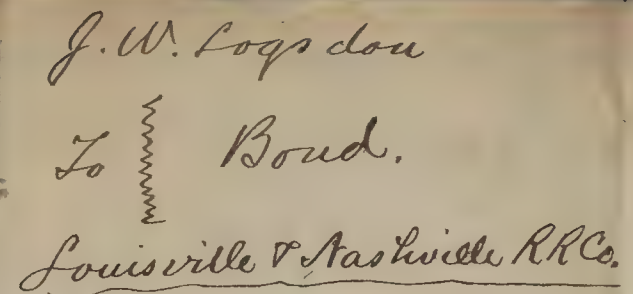 J. W. Logsdon
To Bond.
Louisville & Nashville RR Co.